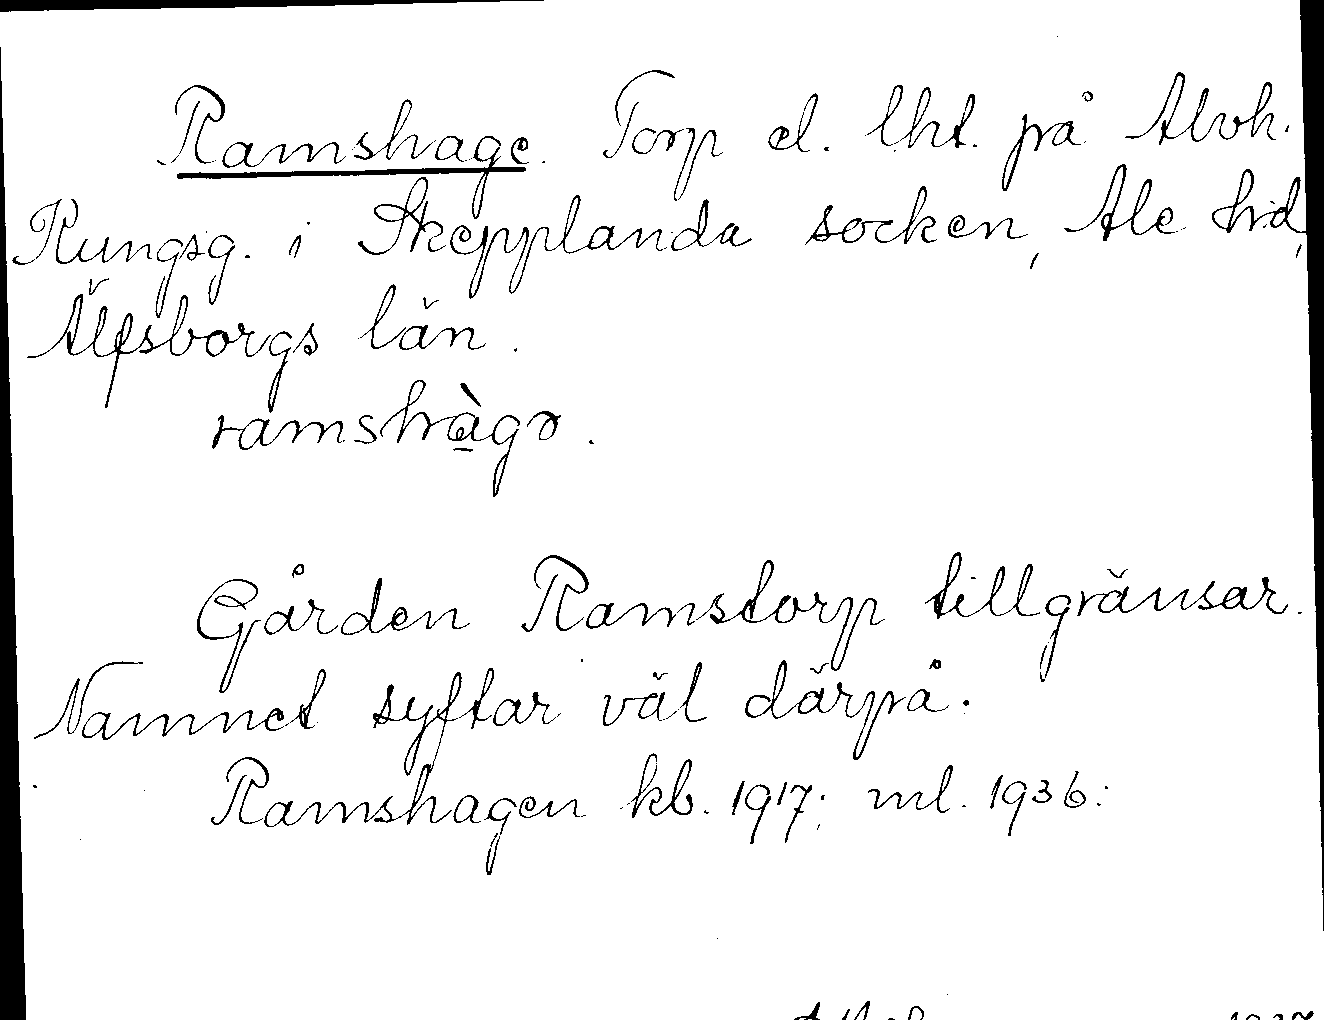 Ramshage. Torp el. lht. på Alvh.
Kungsg. i Skepplanda socken, Ale hd,
Älfsborgs län.
ramshàgə.
Gården Ramstorp tillgränsar.
Namnet syftar väl därpå.
Ramshagen kb. 1917; ml. 1936: